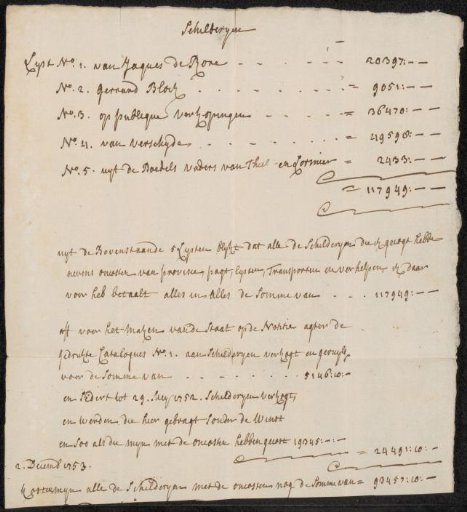 Schilderyen
Lyst No. 1. van Jaques de Rore - - - - - = 20397:--
No. 2. Gerrard Block - - - - - - = 9051:--
No. 3. op publique verkopingen - - - - = 36470:--
No. 4. van verschyde - - - - - - = 49598:--
No. 5. uyt de Boedels vaders van Thol en Cormier = 2433:--
= 117949:--
uyt de Bovenstaande 5 Lysten blykt dat alle de Schilderyen die ik gecogt hebbe
nevens oncosten van provisie pagt lysten, Transporten en verhelpen ik daar
voor heb betaalt alles in alles de Somme van - - 117949:--
aff voor het maken van de Staat op de Notitie agter de
gedrukte Catalogus No. 1. aan Schilderyen verkogt en geruylt
voor de Somme van - - - - - - 5146:10:-
en sedert tot 29. July 1752. Schilderyen verkogt,
en werden die hier gebragt sonder de Winst
en soo als die myn met de oncosten hebben gecost 19345:--:-
= 24491:10:--
2. Decemb 1753.
Costen myn alle de Schilderyen met de oncosten nog de Somme van = 93457:10:-